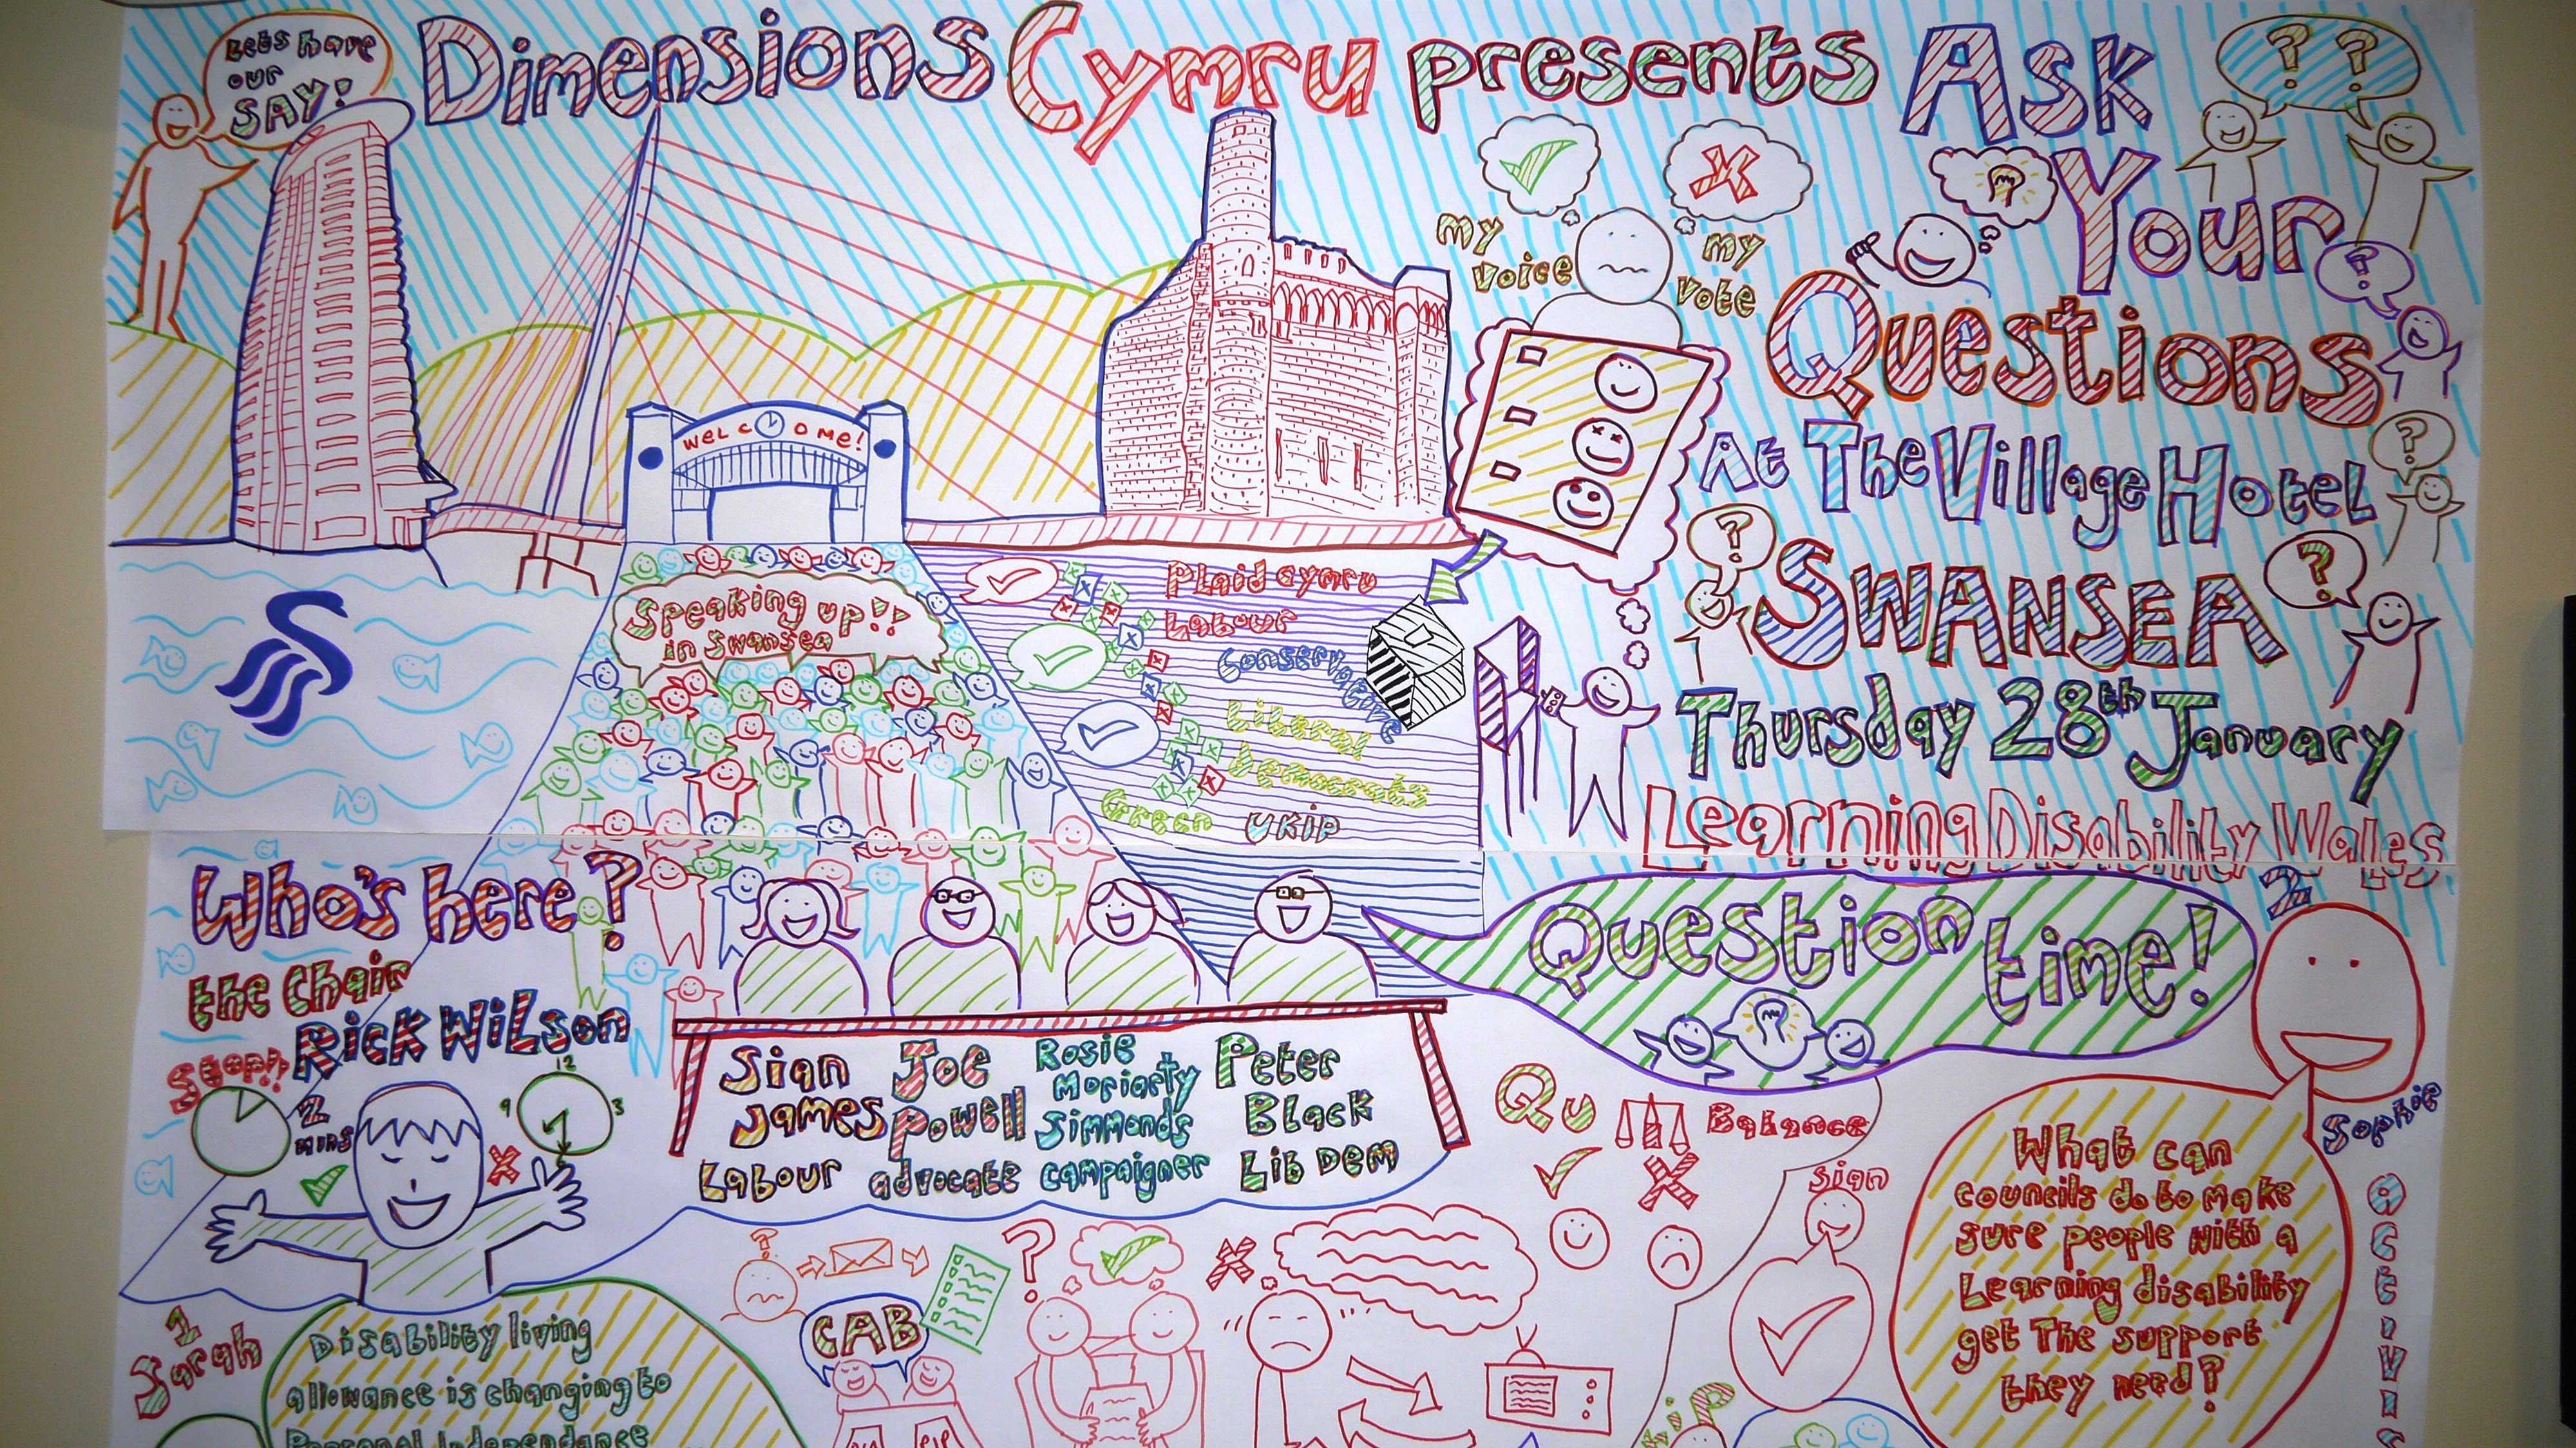 Lets have
our
SAY!
Dimensions Cymru presents Ask
Your
Questions
At The Village Hotel
SWANSEA
Thursday 28th January
Learning Disability Wales
my
voice
my
vote
WELCOME!
Speaking up!!
in Swansea
Plaid Cymru
Labour
Conservative
Liberal
Democrats
Green
UKIP
Who's here?
the Chair
Rick Wilson
Stop!!
2
mins
12
9
3
Sian
James
Labour
Joe
Powell
advocate
Rosie
Moriarty
Simmonds
campaigner
Peter
Black
Lib Dem
Question
time!
2
Sophie
What can
councils do to make
sure people with a
Learning disability
get The support
they need?
Qu
Balance
Sian
CAB
1
Sarah
Disability living
allowance is changing to
Personal Independence